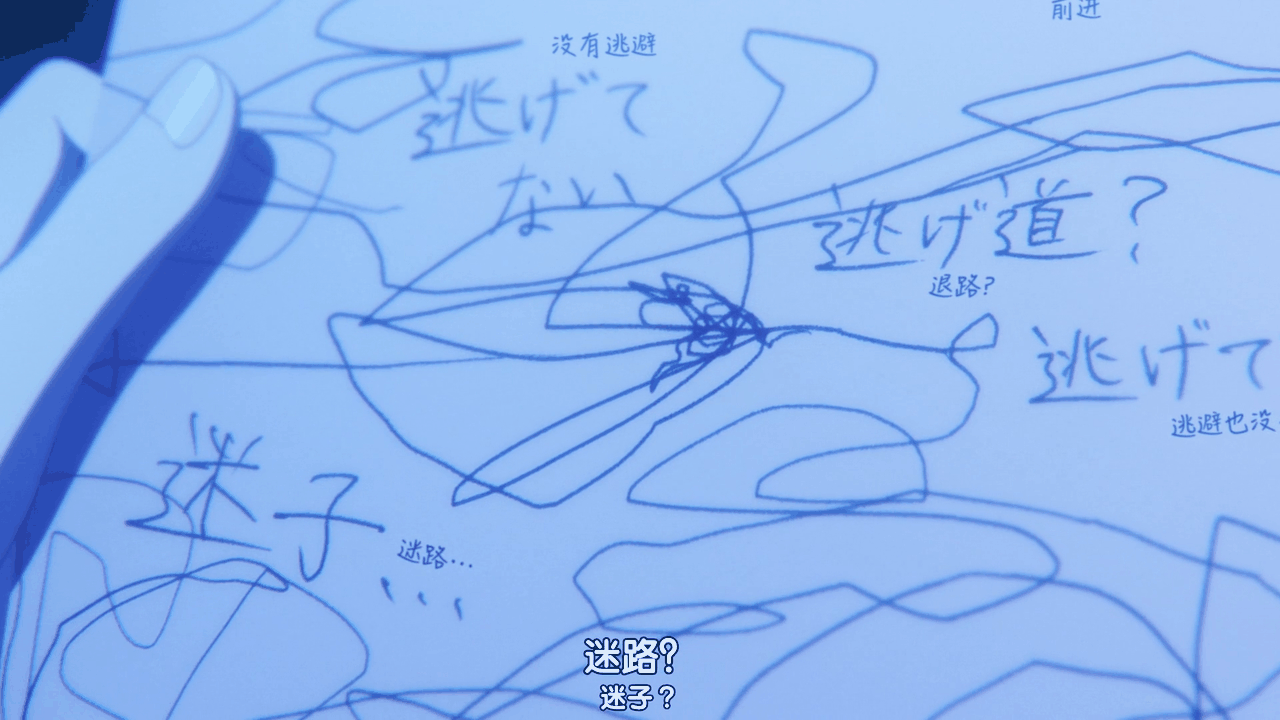 前进
没有逃避
逃げて
ない
逃げ道?
退路?
逃げて
逃避也没
迷子
迷路…
...
迷路?
迷子？